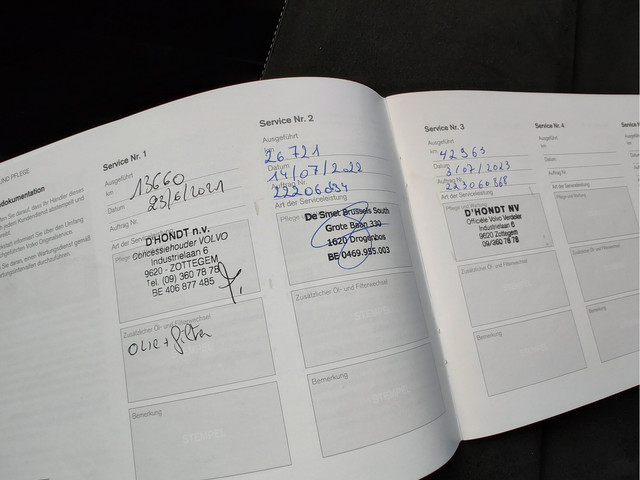 UND PFLEGE
Service Nr. 1
Ausgeführt
km 13660
Datum 23/6/2021
Auftrag Nr.
Art der Serviceleistung
D'HONDT n.v.
Concessiehouder VOLVO
Industrielaan 6
9620 - ZOTTEGEM
Tel. (09) 360 78 78
BE 406 877 485
Zusätzlicher Öl- und Filterwechsel
OLIE + filter
Bemerkung
Service Nr. 2
Ausgeführt
km 26721
Datum 14/07/2022
Auftrag Nr.
Art der Serviceleistung
De Smet Brussels South
Grote Baan 330
1620 Drogenbos
BE 0469.955.003
Zusätzlicher Öl- und Filterwechsel
Bemerkung
Service Nr. 3
Ausgeführt
km 42363
Datum 3/07/2023
Auftrag Nr. 223060868
Art der Serviceleistung
Pflege und Wartung
D'HONDT NV
Officiële Volvo Verdeler
Industrielaan 6
9620 Zottegem
09/360 78 78
Zusätzlicher Öl- und Filterwechsel
Bemerkung
Service Nr. 4
Ausgeführt
km
Datum
Auftrag Nr.
Art der Serviceleistung